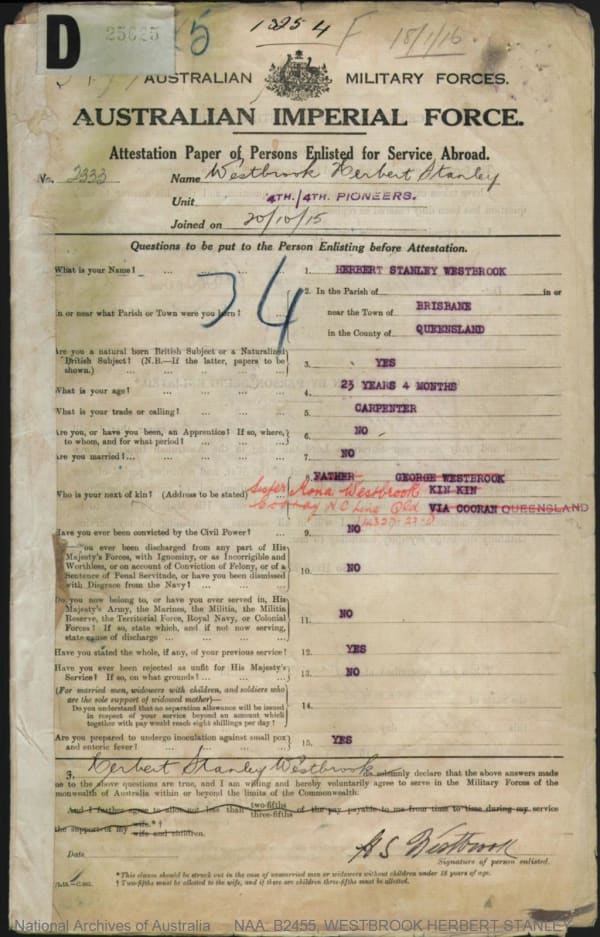 D 25625
1325 4
18/1/16
AUSTRALIAN MILITARY FORCES.
AUSTRALIAN IMPERIAL FORCE.
Attestation Paper of Persons Enlisted for Service Abroad.
No. 2333 Name Westbrook Herbert Stanley
Unit 4TH./4TH. PIONEERS.
Joined on 20/10/15
Questions to be put to the Person Enlisting before Attestation.
What is your Name? 1. HERBERT STANLEY WESTBROOK
In or near what Parish or Town were you born? 2. In the Parish of in or
near the Town of BRISBANE
in the County of QUEENSLAND
Are you a natural born British Subject or a Naturalized
British Subject? (N.B.—If the latter, papers to be
shown.) 3. YES
What is your age? 4. 23 YEARS 4 MONTHS
What is your trade or calling? 5. CARPENTER
Are you, or have you been, an Apprentice? If so, where,
to whom, and for what period? 6. NO
Are you married? 7. NO
8. FATHER GEORGE WESTBROOK
Who is your next of kin? (Address to be stated) Sister Mona Westbrook KIN KIN
Cooroy N.C Line Qld VIA COORAN QUEENSLAND
Have you ever been convicted by the Civil Power? 9. NO
you ever been discharged from any part of His
Majesty's Forces, with Ignominy, or as Incorrigible and
Worthless, or on account of Conviction of Felony, or of a
Sentence of Penal Servitude, or have you been dismissed
with Disgrace from the Navy? 10. NO
Do you now belong to, or have you ever served in, His
Majesty's Army, the Marines, the Militia, the Militia
Reserve, the Territorial Force, Royal Navy, or Colonial
Forces? If so, state which, and if not now serving,
state cause of discharge 11. NO
Have you stated the whole, if any, of your previous service? 12. YES
Have you ever been rejected as unfit for His Majesty's
Service? If so, on what grounds? 13. NO
(For married men, widowers with children, and soldiers who
are the sole support of widowed mother)—
Do you understand that no separation allowance will be issued
in respect of your service beyond an amount which
together with pay would reach eight shillings per day? 14.
Are you prepared to undergo inoculation against small pox
and enteric fever? 15. YES
Herbert Stanley Westbrook
solemnly declare that the above answers made
me to the above questions are true, and I am willing and hereby voluntarily agree to serve in the Military Forces of the
monwealth of Australia within or beyond the limits of the Commonwealth.
And I further agree to allot not less than two-fifths three-fifths of the pay payable to me from time to time during my service
the support of my wife.*† wife and children.
Date
H S Westbrook
Signature of person enlisted.
*This clause should be struck out in the case of unmarried men or widowers without children under 18 years of age.
† Two-fifths must be allotted to the wife, and if there are children three-fifths must be allotted.
National Archives of Australia NAA: B2455, WESTBROOK HERBERT STANLEY